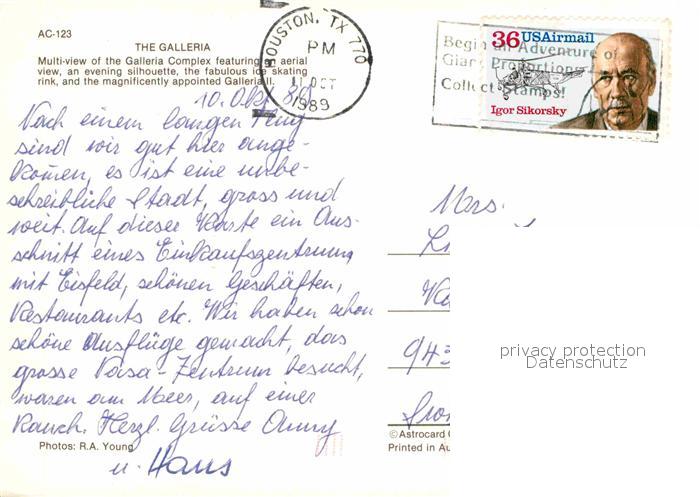 AC-123
THE GALLERIA
Multi-view of the Galleria Complex featuring an aerial
view, an evening silhouette, the fabulous ice skating
rink, and the magnificently appointed Galleria II.
HOUSTON, TX 770
PM
OCT
1989
Begin an Adventure of
Giant Proportions
Collect Stamps!
36 USAirmail
Igor Sikorsky
10. Okt. 89
Nach einem langen Flug
sind wir gut hier ange-
kommen, es ist eine unbe-
schreibliche Stadt, gross und
weit. Auf dieser Karte ein Aus-
schnitt eines Einkaufszentrums
mit Eisfeld, schönen Geschäften,
Restaurants etc. Wir haben schon
schöne Ausflüge gemacht, das
grosse Nasa-Zentrum besucht,
waren am Meer, auf einer
Ranch. Herzl. Grüsse Anny
u. Hans
Photos: R.A. Young
Mrs.
943
privacy protection
Datenschutz
© Astrocard
Printed in Au